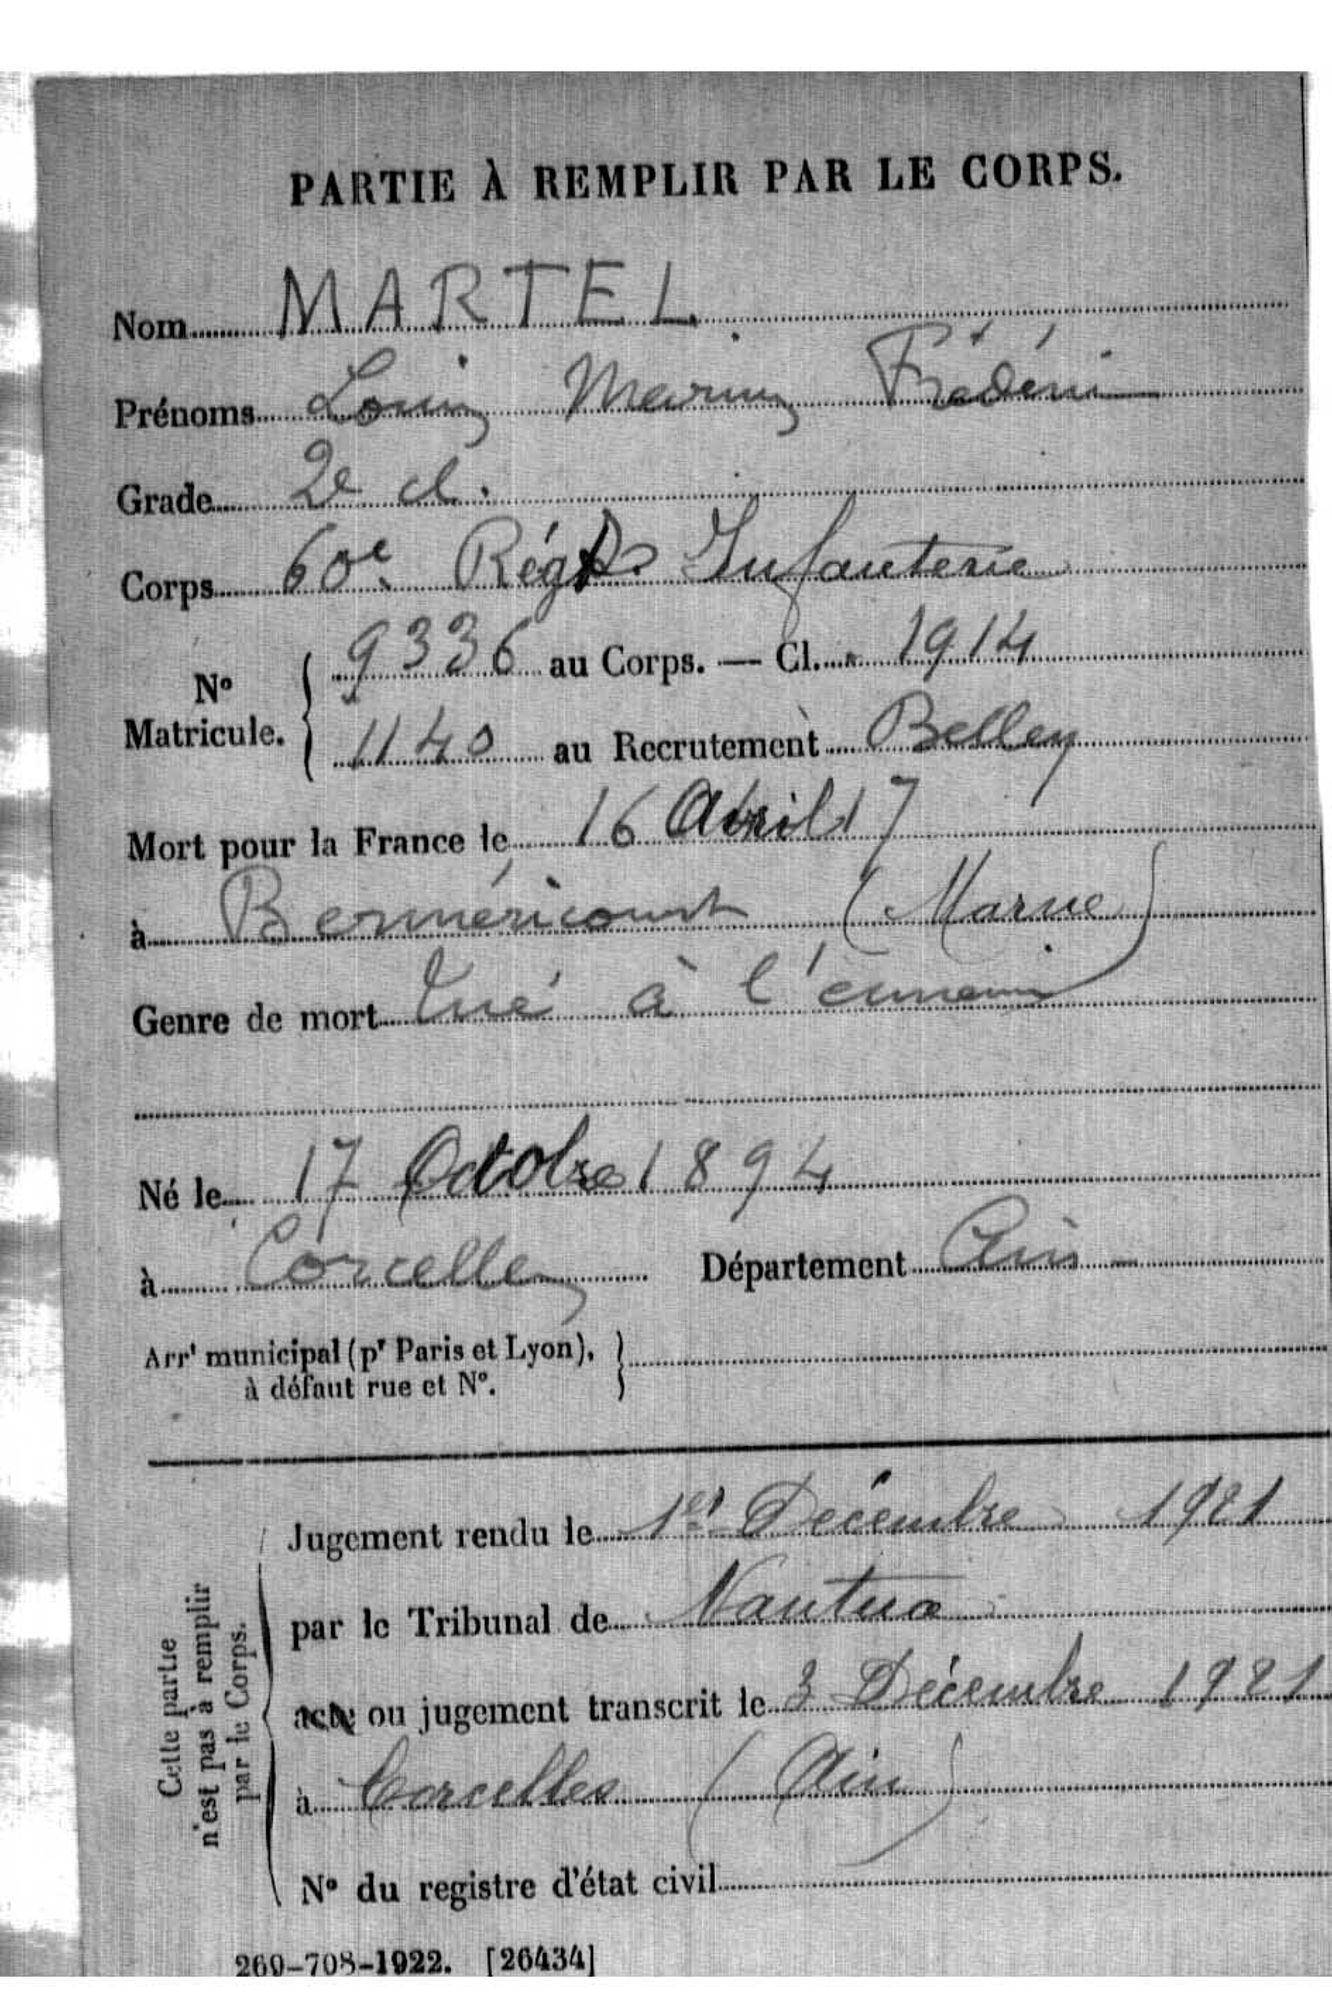 PARTIE À REMPLIR PAR LE CORPS.
Nom MARTEL
Prénoms Louis Marius Frédéric
Grade 2e cl.
Corps 60e Régt. Infanterie
N° Matricule. 9336 au Corps. — Cl. 1914
1140 au Recrutement Belley
Mort pour la France le 16 Avril 17
à Berméricourt (Marne)
Genre de mort tué à l'ennemi
Né le 17 Octobre 1894
à Corcelles Département Ain
Arrt municipal (pr Paris et Lyon),
à défaut rue et N°.
Cette partie
n'est pas à remplir
par le Corps.
Jugement rendu le 1er Décembre 1921
par le Tribunal de Nantua
acte ou jugement transcrit le 3 Décembre 1921
à Corcelles (Ain)
N° du registre d'état civil
269-708-1922. [26434]